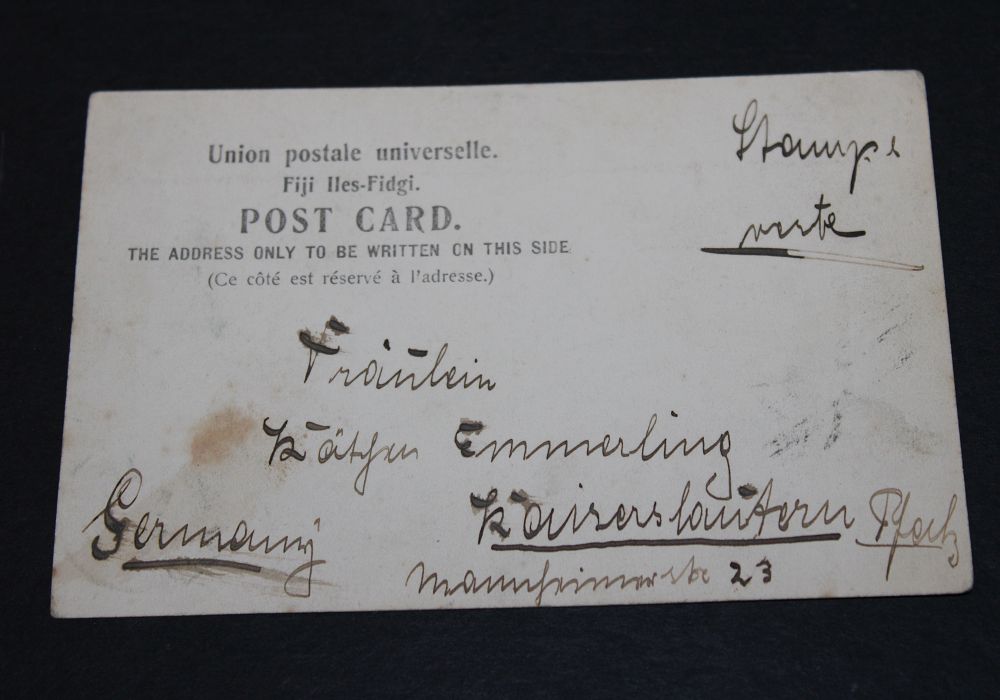 Union postale universelle.
Fiji Iles-Fidgi.
POST CARD.
THE ADDRESS ONLY TO BE WRITTEN ON THIS SIDE
(Ce côté est réservé à l'adresse.)
Stamps
verte
Fräulein
Kätchen Emmerling
Kaiserslautern Pfalz
Germany
Mannheimerstr 23